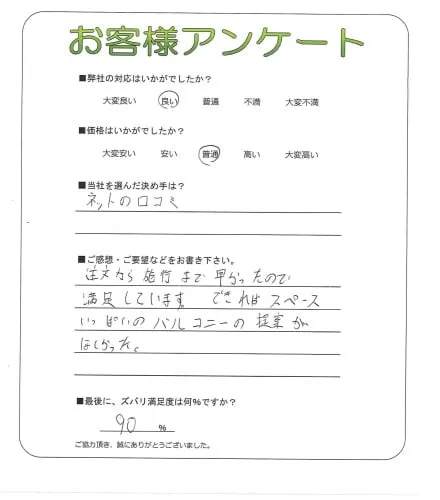 お客様アンケート
■弊社の対応はいかがでしたか？
大変良い 良い 普通 不満 大変不満
■価格はいかがでしたか？
大変安い 安い 普通 高い 大変高い
■当社を選んだ決め手は？
ネットの口コミ
■ご感想・ご要望などをお書き下さい。
注文から施行まで早かったので
満足しています できれば スペース
いっぱいのバルコニーの提案が
ほしかった。
■最後に、ズバリ満足度は何％ですか？
90 ％
ご協力頂き、誠にありがとうございました。